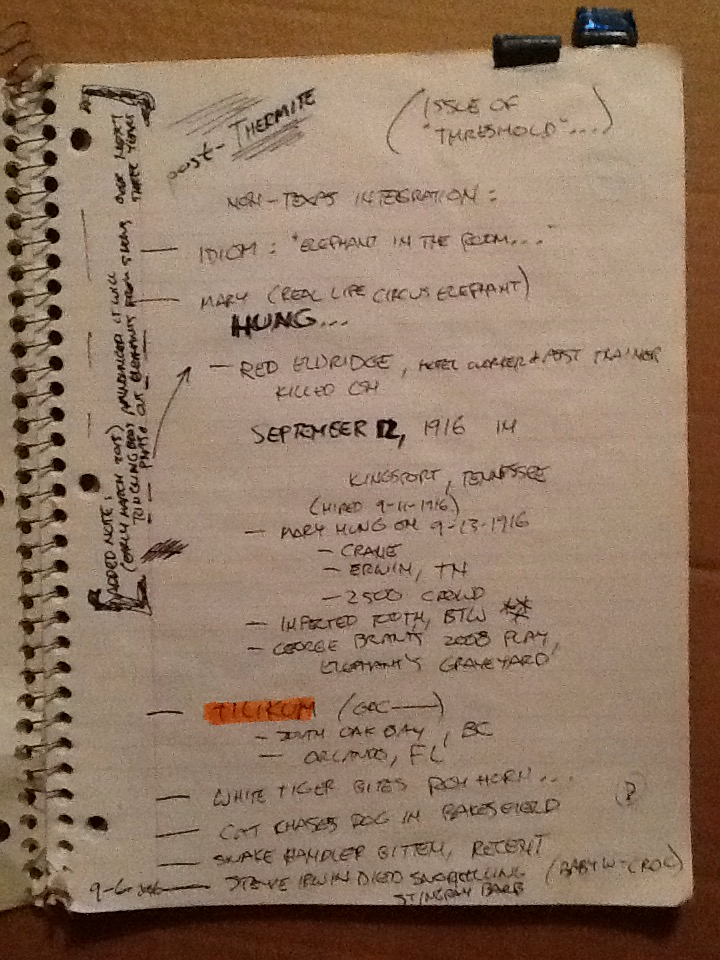 post-THERMITE
(ISSUE OF
"THRESHOLD"....)
NON-TEXAS INTEGRATION:
— IDIOM: "ELEPHANT IN THE ROOM..."
— MARY (REAL LIFE CIRCUS ELEPHANT)
HUNG...
— RED ELDRIDGE, HOTEL WORKER + PAST TRAINER
KILLED ON
SEPTEMBER 12, 1916 IN
KINGSPORT, TENNESSEE
(HIRED 9-11-1916)
— MARY HUNG ON 9-13-1916
— CRANE
— ERWIN, TN
— 2500 CROWD
— INFECTED TOOTH, BTW **
— GEORGE BRANT'S 2008 PLAY,
ELEPHANT'S GRAVEYARD
— TILIKUM (ORC——)
— SOUTH OAK BAY, BC
— ORLANDO, FL
— WHITE TIGER BITES ROY HORN...
— CAT CHASES DOG IN BAKERSFIELD
— SNAKE HANDLER BITTEN, RECENT
9-6- — STEVE IRWIN DIED SNORKELLING (BABY W-CROC)
STINGRAY BARB
ADDED NOTE:
(EARLY MARCH 2015)
RINGLING BROS ANNOUNCED IT WILL
PHASE OUT ELEPHANTS FROM SHOWS OVER NEXT
THREE YEARS